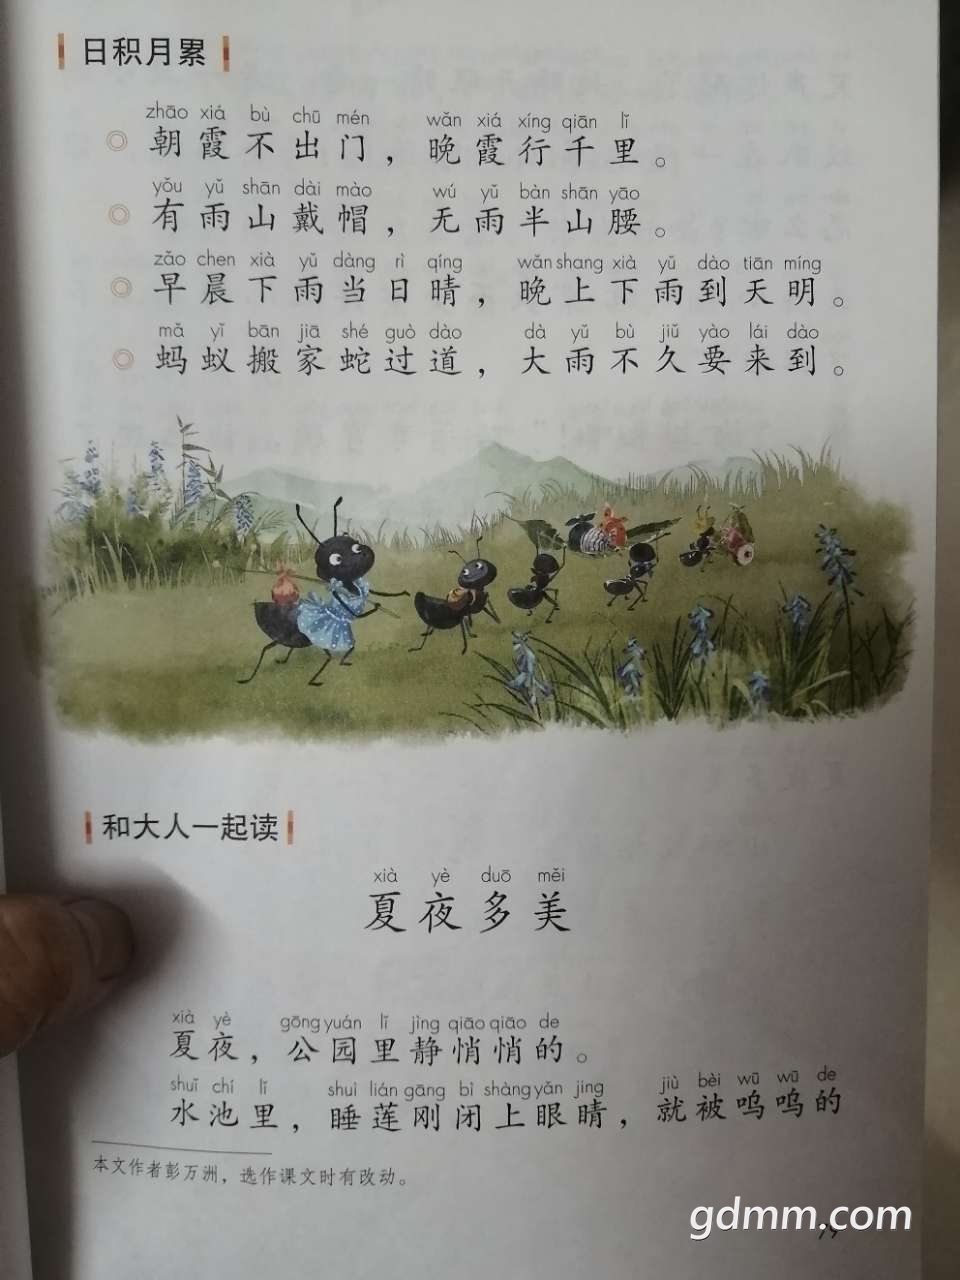 日积月累
zhāo xiá bù chū mén wǎn xiá xíng qiān lǐ
朝霞不出门，晚霞行千里。
yǒu yǔ shān dài mào wú yǔ bàn shān yāo
有雨山戴帽，无雨半山腰。
zǎo chen xià yǔ dàng rì qíng wǎn shang xià yǔ dào tiān míng
早晨下雨当日晴，晚上下雨到天明。
mǎ yǐ bān jiā shé guò dào dà yǔ bù jiǔ yào lái dào
蚂蚁搬家蛇过道，大雨不久要来到。
和大人一起读
xià yè duō měi
夏夜多美
xià yè gōng yuán lǐ jìng qiāo qiāo de
夏夜，公园里静悄悄的。
shuǐ chí lǐ shuì lián gāng bì shàng yǎn jing jiù bèi wū wū de
水池里，睡莲刚闭上眼睛，就被呜呜的
本文作者彭万洲，选作课文时有改动。
gdmm.com